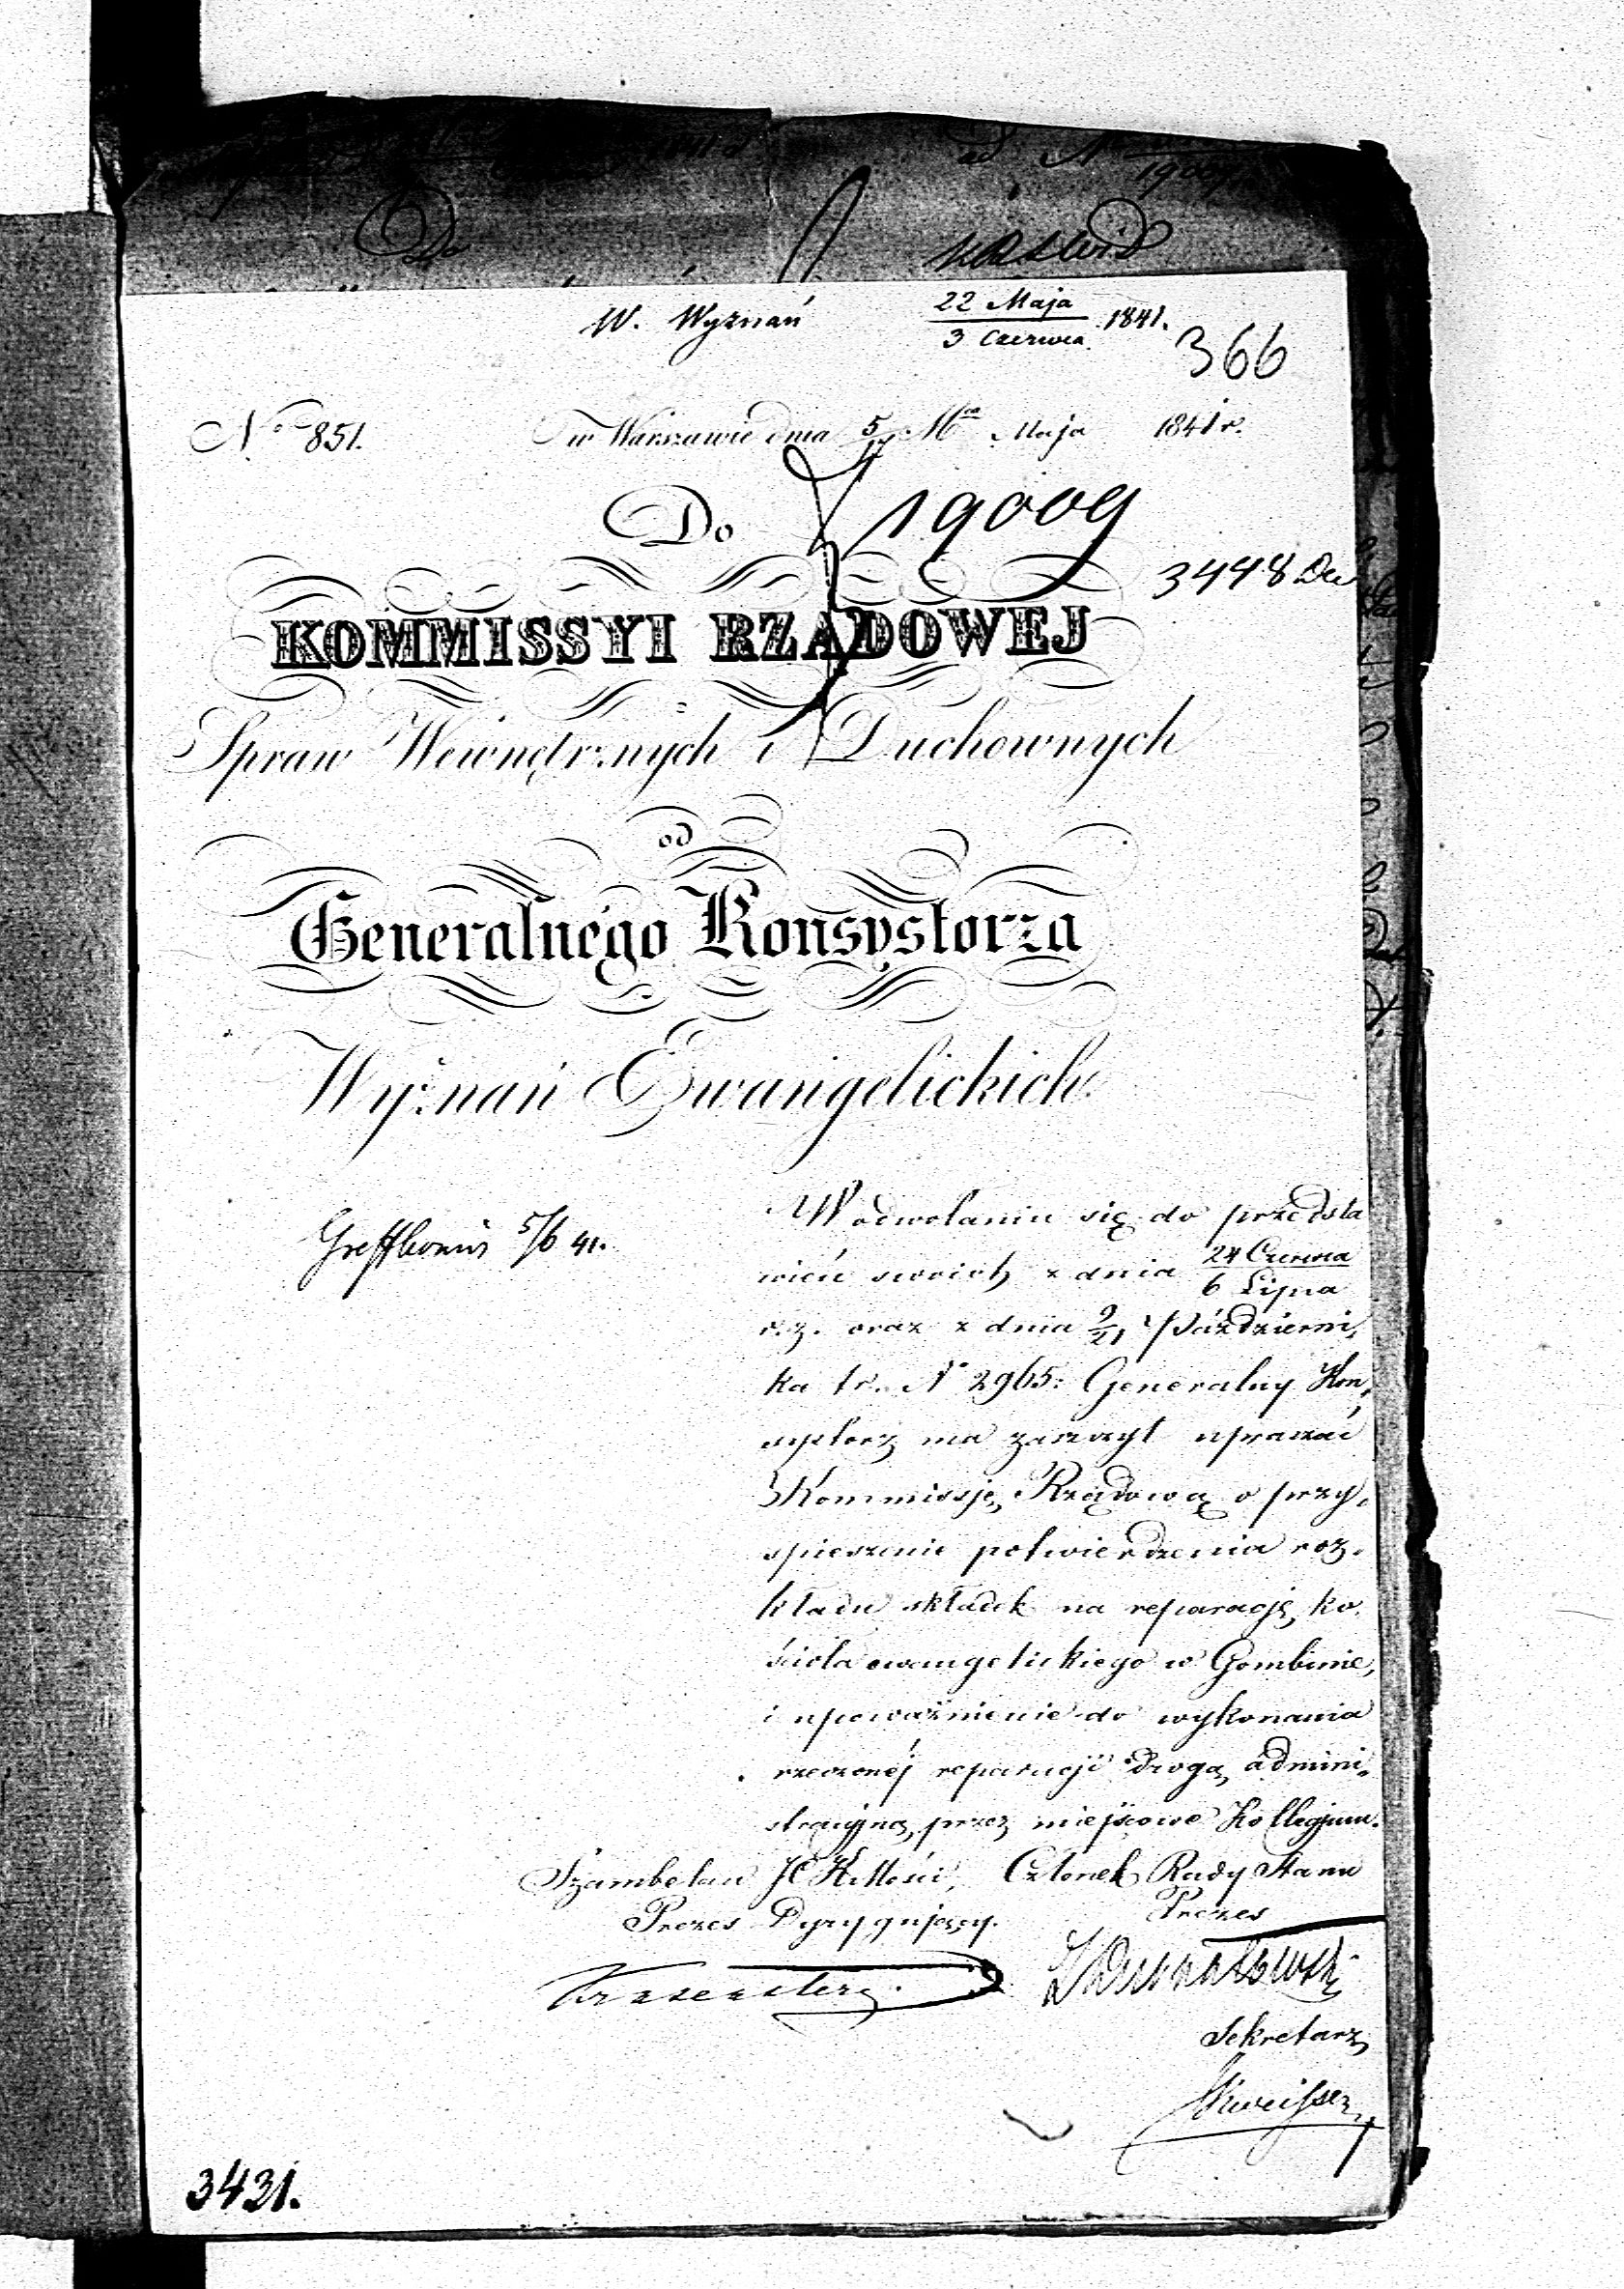 Do
ad N
19009
W. Wyznań
22 Maja
3 Czerwca 1841.
366
No 851. w Warszawie dnia 5/17 Mca Maja 1841 r.
Do
19009
3448
KOMMISSYI RZĄDOWEJ
Spraw Wewnętrznych i Duchownych
od
Generalnego Konsystorza
Wyznań Ewangelickich.
5/6 41.
W odwołaniu się do przedsta
wień swoich z dnia 24 Czerwca
6 Lipca
r.z. oraz z dnia 9/21 Październi,
ka t.r. No 2965: Generalny Kon,
systorz ma zaszczyt upraszać
Kommissję Rządową o przy,
spieszenie potwierdzenia roz,
kładu składek na reparację ko,
ścioła ewangelickiego w Gombinie,
i upoważnienie do wykonania
rzeczonéj reparacji drogą admini,
stracyjną, przez miejscowe Kollegjum.
Szambelan JCKMości, Członek Rady Stanu
Prezes Dyrygujący. Prezes
Sekretarz
3431.